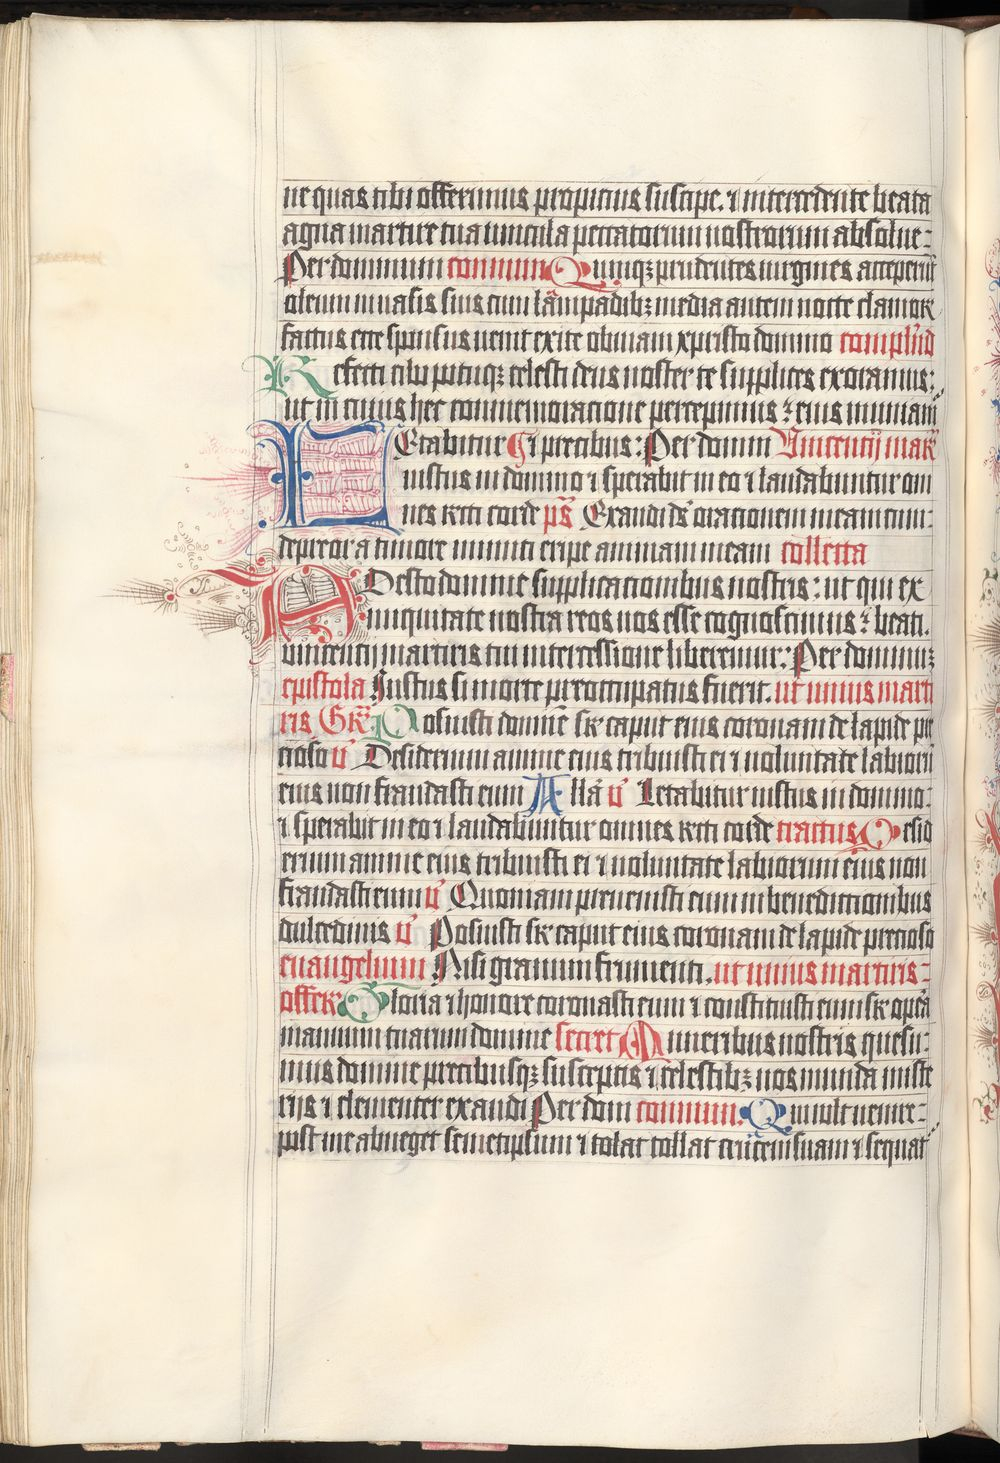 ne quas tibi offerimus propicius suscipe. ⁊ intercedente beata
agna martire tua uincula peccatorum nostrorum absolue:
Per dominum commun Quinqꝫ prudentes uirgines acceperūt
oleum in uasis suis cum lāmpadibꝫ media autem nocte clamor
factus ecce sponsus uenit exite obuiam xpristo domino complnd
Refecti cibo potuqꝫ celesti deus noster te supplices exoramus:
ut in cuius hec commemoracione percepimus ꝫ eius muniam
Letabitur Gi precibus: Per domin Vincentij mar
iustus in domino ⁊ sperabit in eo ⁊ laudabuntur om
nes recti corde ps̄ Exaudi ds̄ orationem meam cum:
deprecor a timore inimici eripe animam meam collecta
ADesto domine supplicacionibus nostris: ut qui ex
iniquitate nostra reos nos esse cognoscimus ꝫ beati.
uincentij martiris tui intercessione liberemur: Per dominuꝫ
epistola Iustus si morte preoccupatus fuerit. ut unius marti
ris Gr̄ Posuisti domine sr caput eius coronam de lapide pre
cioso v̄ Desiderium anime eius tribuisti ei ⁊ uoluntate labiorū
eius non fraudasti eum Allā v̄ Letabitur iustus in domino:
⁊ sperabit in eo ⁊ laudabuntur omnes recti corde tractus Desid
erium anime eius tribuisti ei ⁊ uoluntate labiorum eius non
fraudasti eum v̄ Quoniam preuenisti eum in benedictionibus
dulcedinis v̄ Posuisti sr caput eius coronam de lapide precioso
euangelium Nisi granum frumenti. ut unius martiris:
offer Gloria ⁊ honore coronasti eum ⁊ constituisti eum sr opera
manuum tuarum domine secret Muneribus nostris quesu:
mus domine precibusqꝫ susceptis ⁊ celestibꝫ nos munda miste
riis ⁊ clementer exaudi Per dom commun: Qui uolt uenire:
post me abneget semetipsum ⁊ tolat tollat crucem suam ⁊ sequat